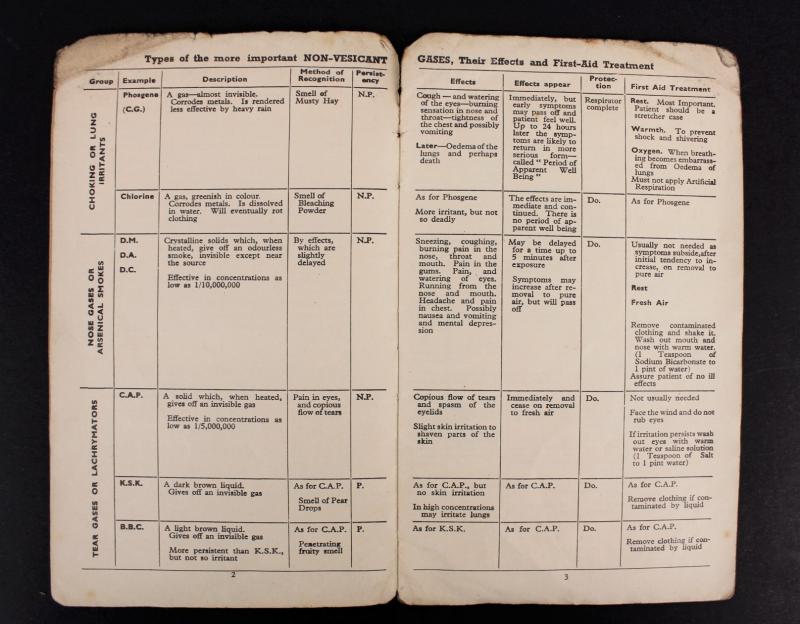 Types of the more important NON-VESICANT
Group
Example
Description
Method of
Recognition
Persist-
ency
CHOKING OR LUNG
IRRITANTS
Phosgene
(C.G.)
A gas—almost invisible.
Corrodes metals. Is rendered
less effective by heavy rain
Smell of
Musty Hay
N.P.
Chlorine
A gas, greenish in colour.
Corrodes metals. Is dissolved
in water. Will eventually rot
clothing
Smell of
Bleaching
Powder
N.P.
NOSE GASES OR
ARSENICAL SMOKES
D.M.
D.A.
D.C.
Crystalline solids which, when
heated, give off an odourless
smoke, invisible except near
the source
Effective in concentrations as
low as 1/10,000,000
By effects,
which are
slightly
delayed
N.P.
TEAR GASES OR LACHRYMATORS
C.A.P.
A solid which, when heated,
gives off an invisible gas
Effective in concentrations as
low as 1/5,000,000
Pain in eyes,
and copious
flow of tears
N.P.
K.S.K.
A dark brown liquid.
Gives off an invisible gas
As for C.A.P.
Smell of Pear
Drops
P.
B.B.C.
A light brown liquid.
Gives off an invisible gas
More persistent than K.S.K.,
but not so irritant
As for C.A.P.
Penetrating
fruity smell
P.
2
GASES, Their Effects and First-Aid Treatment
Effects
Effects appear
Protec-
tion
First Aid Treatment
Cough — and watering
of the eyes—burning
sensation in nose and
throat—tightness of
the chest and possibly
vomiting
Later—Oedema of the
lungs and perhaps
death
Immediately, but
early symptoms
may pass off and
patient feel well.
Up to 24 hours
later the symp-
toms are likely to
return in more
serious form—
called " Period of
Apparent Well
Being "
Respirator
complete
Rest. Most Important.
Patient should be a
stretcher case
Warmth. To prevent
shock and shivering
Oxygen. When breath-
ing becomes embarrass-
ed from Oedema of
lungs
Must not apply Artificial
Respiration
As for Phosgene
More irritant, but not
so deadly
The effects are im-
mediate and con-
tinued. There is
no period of ap-
parent well being
Do.
As for Phosgene
Sneezing, coughing,
burning pain in the
nose, throat and
mouth. Pain in the
gums. Pain, and
watering of eyes.
Running from the
nose and mouth.
Headache and pain
in chest. Possibly
nausea and vomiting
and mental depres-
sion
May be delayed
for a time up to
5 minutes after
exposure
Symptoms may
increase after re-
moval to pure
air, but will pass
off
Do.
Usually not needed as
symptoms subside, after
initial tendency to in-
crease, on removal to
pure air
Rest
Fresh Air
Remove contaminated
clothing and shake it.
Wash out mouth and
nose with warm water.
(1 Teaspoon of
Sodium Bicarbonate to
1 pint of water)
Assure patient of no ill
effects
Copious flow of tears
and spasm of the
eyelids
Slight skin irritation to
shaven parts of the
skin
Immediately and
cease on removal
to fresh air
Do.
Not usually needed
Face the wind and do not
rub eyes
If irritation persists wash
out eyes with warm
water or saline solution
(1 Teaspoon of Salt
to 1 pint water)
As for C.A.P., but
no skin irritation
In high concentrations
may irritate lungs
As for C.A.P.
Do.
As for C.A.P.
Remove clothing if con-
taminated by liquid
As for K.S.K.
As for C.A.P.
Do.
As for C.A.P.
Remove clothing if con-
taminated by liquid
3